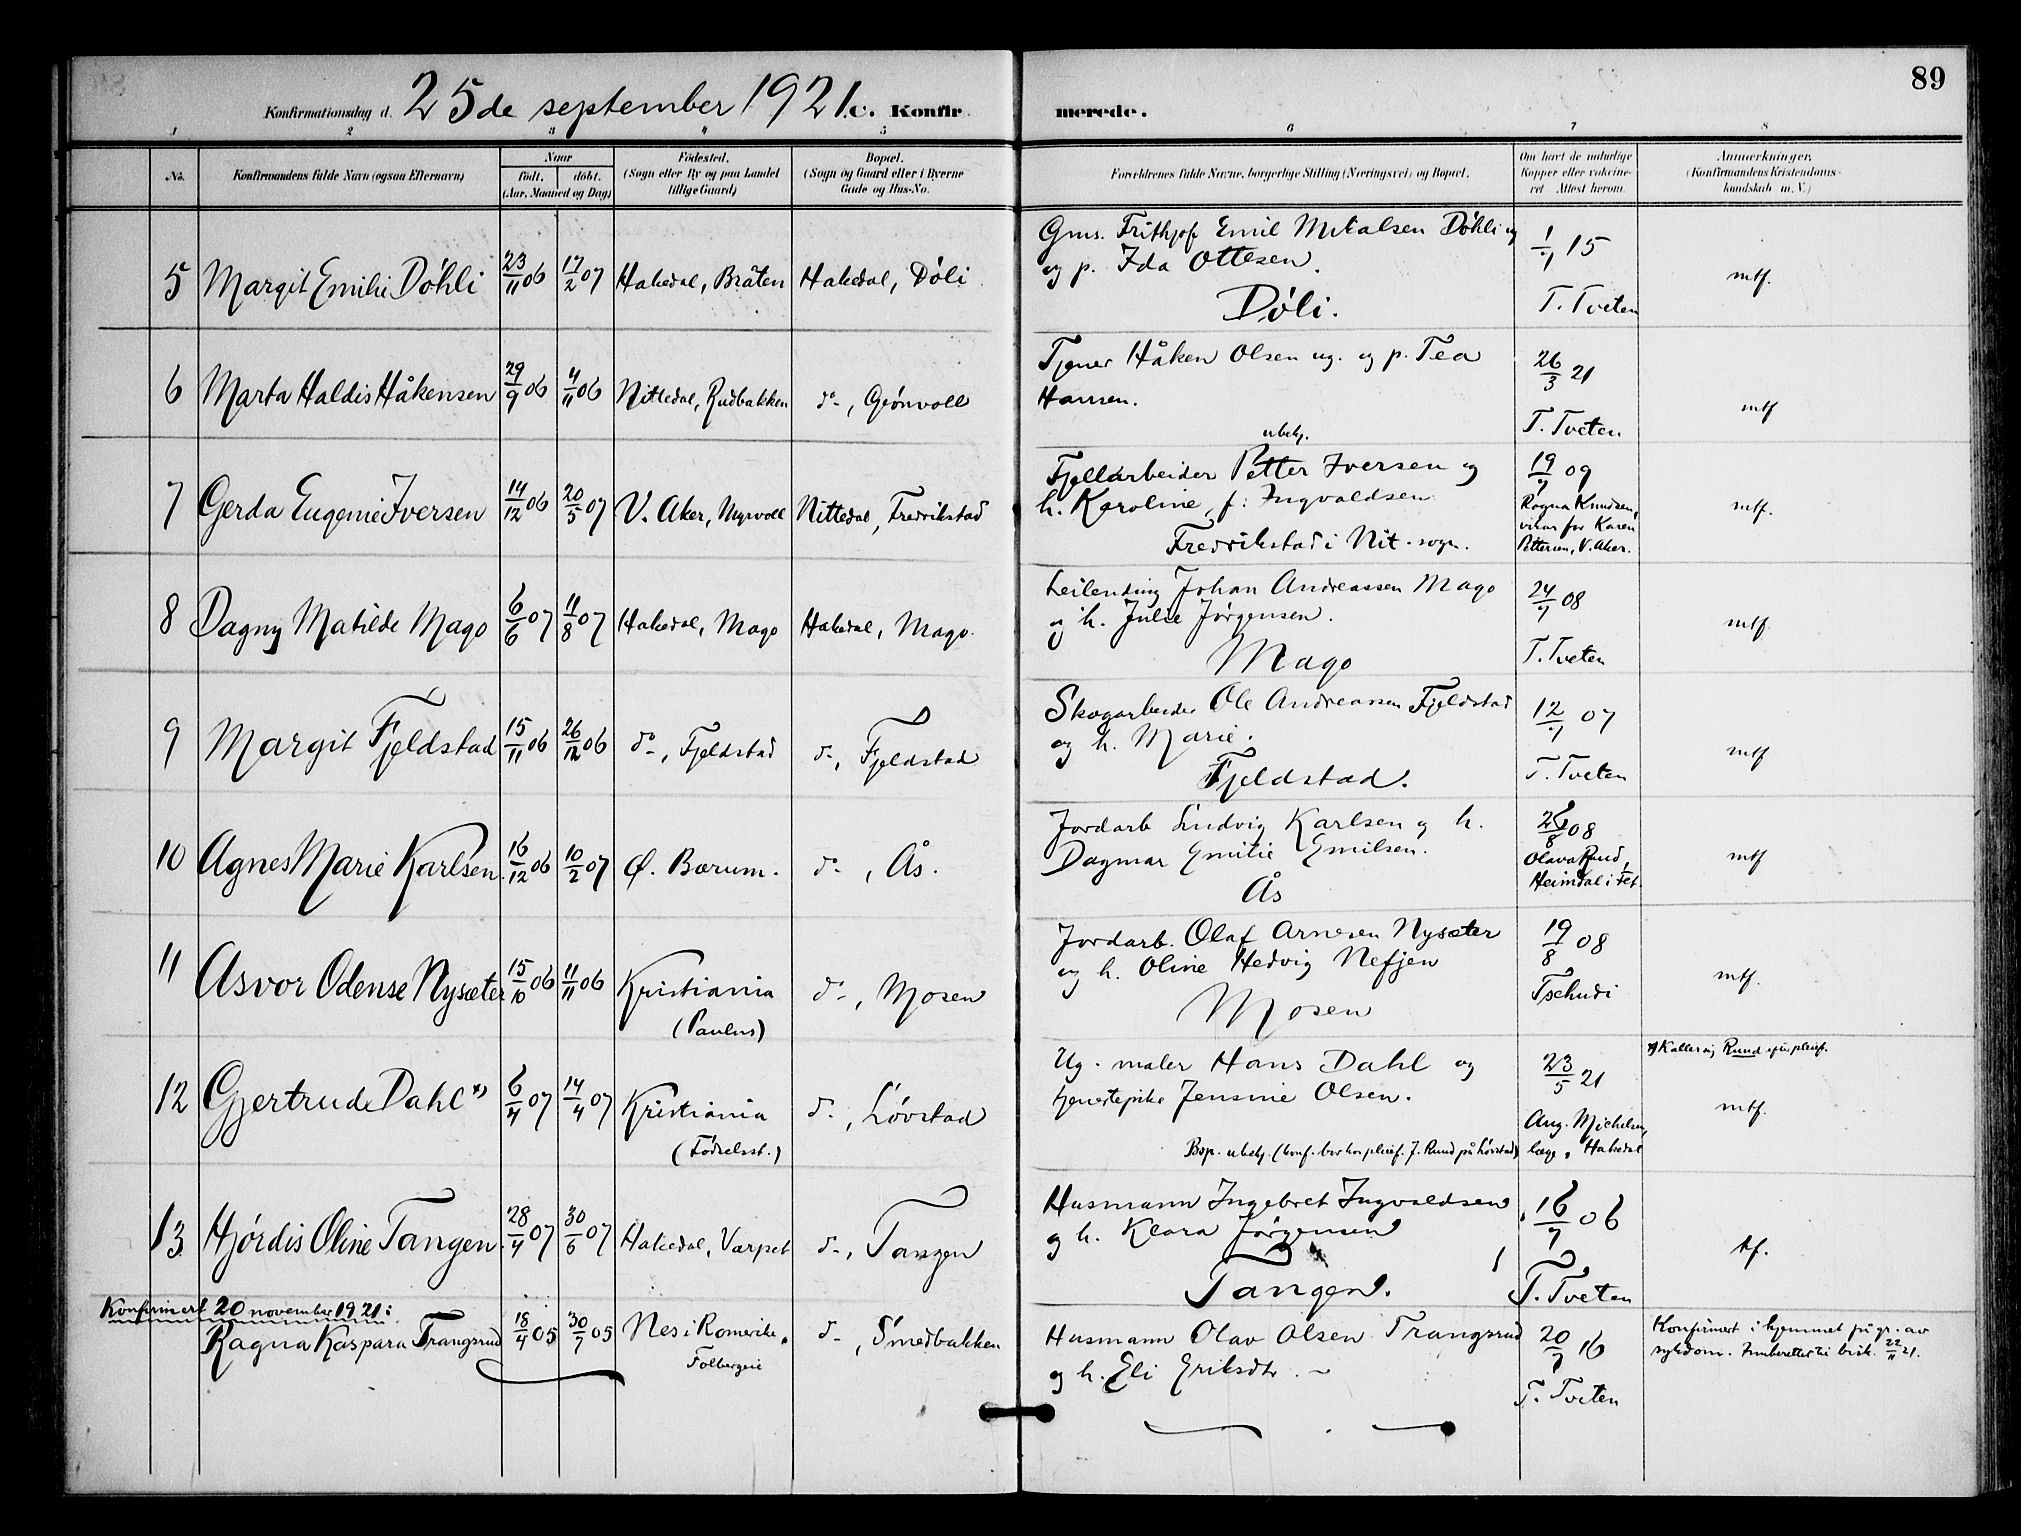 89
Konfirmationsdag d. 25de september 1921. c. Konfirmerede.
1 2 3 4 5 6 7 8
No.
Konfirmandens fulde Navn (ogsaa Efternavn)
Naar
født. døbt.
(Aar, Maaned og Dag)
Fødested.
(Sogn eller By og paa Landet
tillige Gaard)
Bopæl.
(Sogn og Gaard eller i Byerne
Gade og Hus-No.
Forældrenes fulde Navne, borgerlige Stilling (Næringsvei) og Bopæl.
Om havt de naturlige
Kopper eller vakcine-
ret Attest herom.
Anmærkninger.
(Konfirmandens Kristendoms-
kundskab m. V.)
5 Margit Emilie Døhli 23/11 06 17/2 07 Hakedal, Bråten Hakedal, Døli
Gms. Frithjof Emil Mikalsen Døhli og
og p. Ida Ottesen.
Døli.
1/7 15
T. Tveten
mtf.
6 Marta Haldis Håkensen 29/9 06 4/11 06 Nittedal, Rudbakken do-, Grønvoll
Tjener Håken Olsen ug. og p. Tea
Hansen.
ubekj.
26/3 21
T. Tveten
mtf
7 Gerda Eugenie Iversen 14/12 06 20/5 07 V. Aker, Myrvoll Nittedal, Fredrikstad
Fjellarbeider Petter Iversen og
h. Karoline, f: Ingvaldsen
Fredrikstad i Nit.sogn.
19/7 09
Ragna Knudsen,
vikar for Karen
Pettersen, V. Aker.
mtf.
8 Dagny Matilde Mago 6/6 07 11/8 07 Hakedal, Mago Hakedal, Mago.
Leilending Johan Andreassen Mago
og h. Julie Jørgensen.
Mago
24/7 08
T. Tveten
mtf.
9 Margit Fjeldstad 15/11 06 26/12 06 do-, Fjeldstad d-, Fjeldstad
Skogarbeider Ole Andreassen Fjeldstad
og h. Marie.
Fjeldstad.
12/7 07
T. Tveten
mtf
10 Agnes Marie Karlsen. 16/12 06 10/2 07 Ø. Bærum. d-, Ås.
Jordarb Ludvig Karlsen og h.
Dagmar Emilie Emilsen.
Ås
26/8 08
Olava Rud,
Heimdal i Fet.
mtf
11 Asvor Odense Nysæter 15/10 06 11/11 06 Kristiania d-, Mosen
(Paulus)
Jordarb. Olaf Arnesen Nysæter
og h. Oline Hedvig Nefjen
Mosen
19/8 08
Tschudi
mtf.
12 Gjertrude Dahl x) 6/4 07 14/4 07 Kristiania d-, Løvstad
(Fødselsst.)
Ug. maler Hans Dahl og
tjenestepike Jensine Olsen.
Bop. ubekj. (konf. bor hos pleief. J. Ruud på Løvstad)
23/5 21
Aug. Michelsen,
læge, Hakedal
x) Kaller sig Ruud efter pleief.
mtf.
13 Hjørdis Oline Tangen. 28/4 07 30/6 07 Hakedal, Varpet d-, Tangen
Husmann Ingebret Ingvaldsen
og h. Klara Jørgensen
Tangen.
16/7 06
T. Tveten
tf.
Konfirmert 20 november 1921:
Ragna Kaspara Trangsrud 18/4 05 30/7 05 Nes i Romerike, d-, Smedbakken
Folbergeie
Husmann Olav Olsen Trangsrud
og h. Eli Eriksdtr.
20/7 16
T. Tveten
Konfirmert i hjemmet på gr. av
sykdom. Innberettet til bisk. 22/11 21.